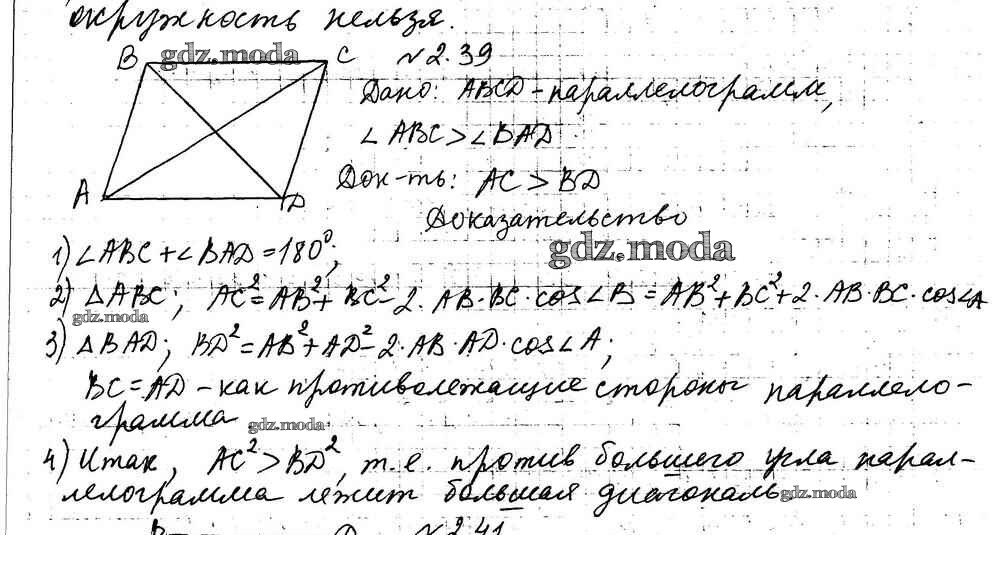 окружность нельзя.
B gdz.moda C №2.39
Дано: ABCD - параллелограмм,
∠ABC > ∠BAD
A D Док-ть: AC > BD
Доказательство
gdz.moda
1) ∠ABC + ∠BAD = 180°;
2) △ABC; AC² = AB² + BC² - 2·AB·BC·cos∠B = AB² + BC² + 2·AB·BC·cos∠A
gdz.moda
3) △BAD; BD² = AB² + AD² - 2·AB·AD·cos∠A;
BC = AD - как противолежащие стороны параллело-
грамма gdz.moda
4) Итак, AC² > BD², т.е. против большего угла парал-
лелограмма лежит большая диагональ gdz.moda
№2.41